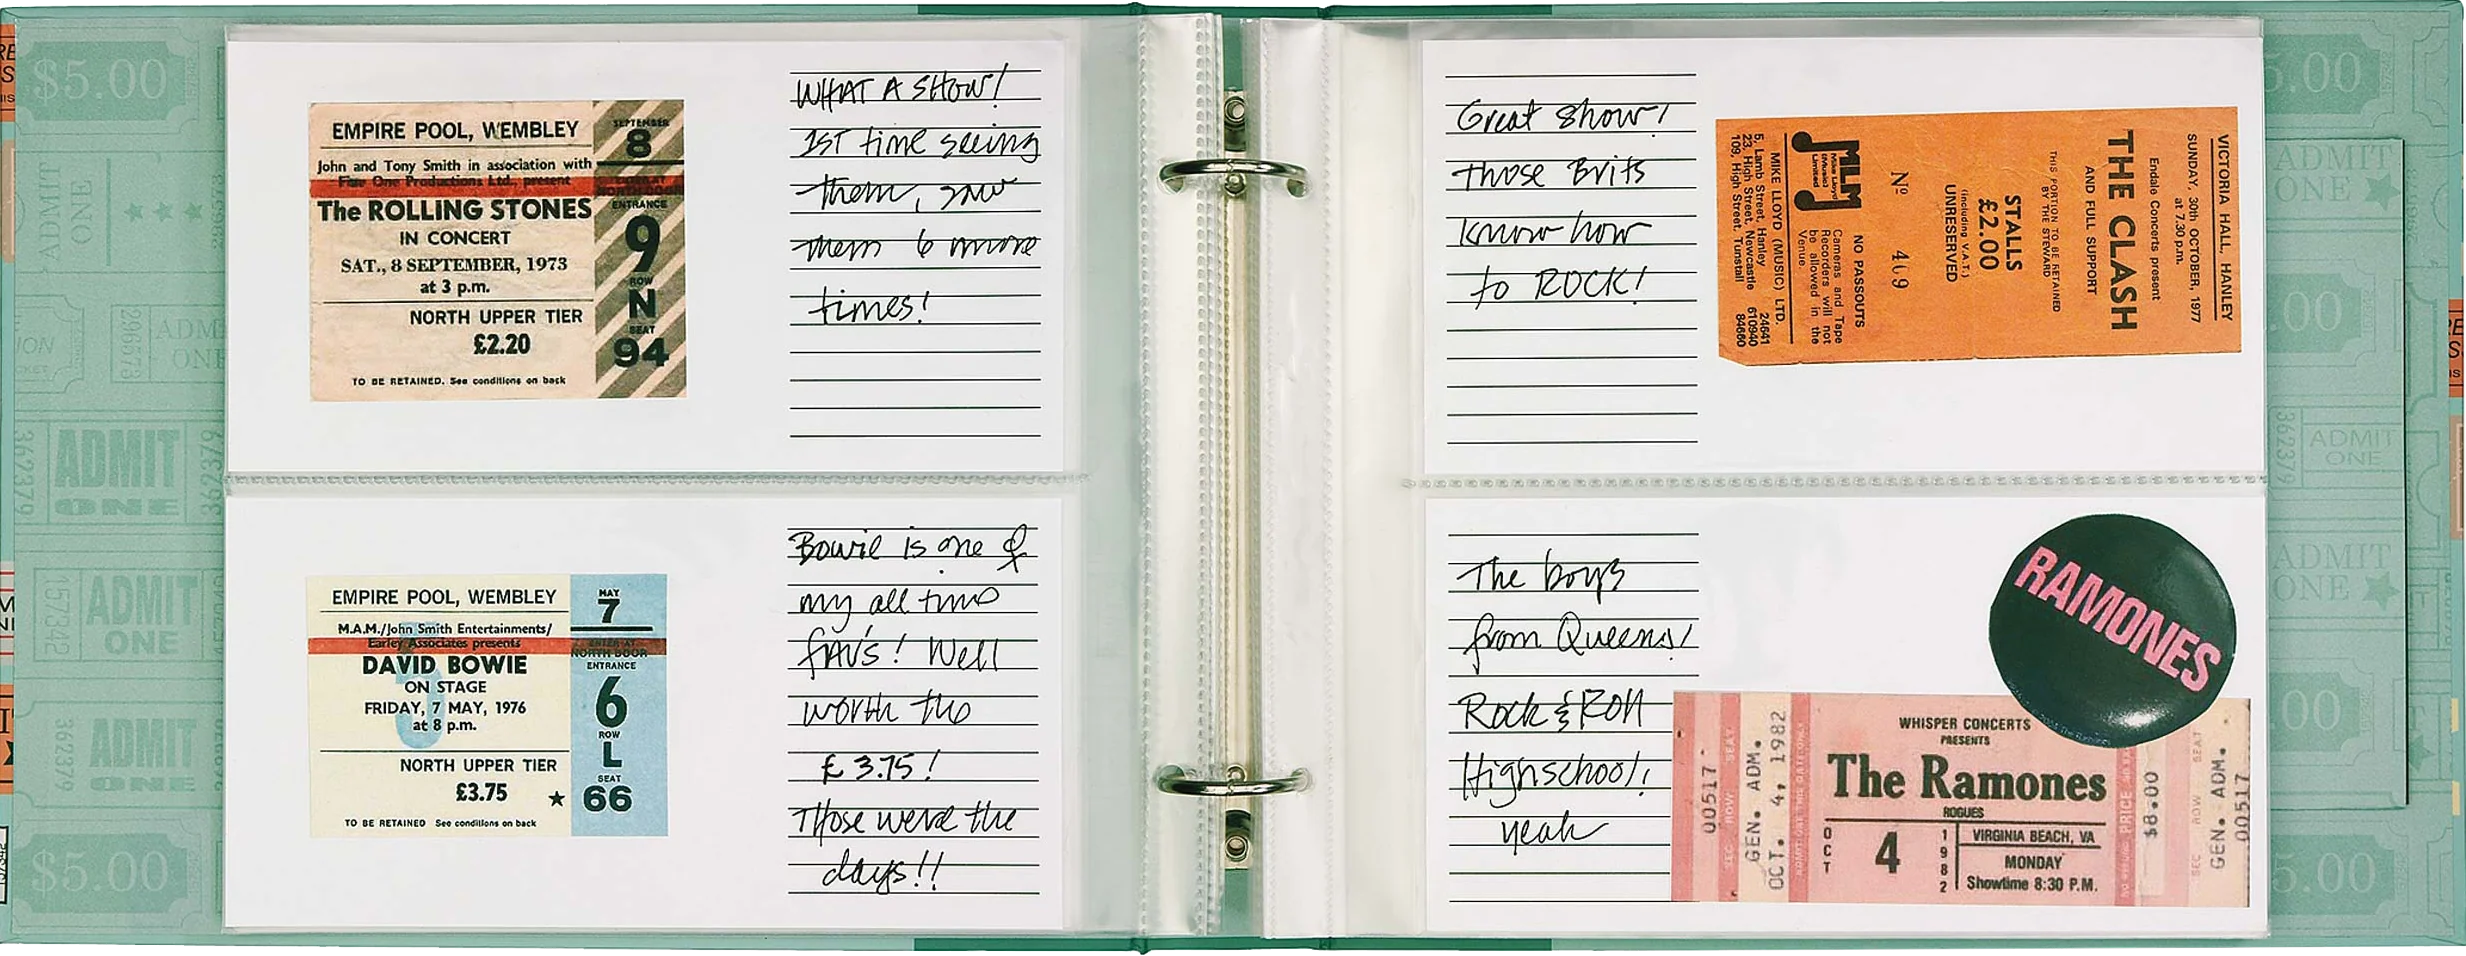 EMPIRE POOL, WEMBLEY
John and Tony Smith in association with
Five One Productions Ltd., present
The ROLLING STONES
IN CONCERT
SAT., 8 SEPTEMBER, 1973
at 3 p.m.
NORTH UPPER TIER
£2.20
TO BE RETAINED. See conditions on back
SEPTEMBER
8
NORTH DOOR
ENTRANCE
9
ROW
N
SEAT
94
WHAT A SHOW!
1ST time seeing
them, saw
them 6 more
times!
EMPIRE POOL, WEMBLEY
M.A.M./John Smith Entertainments/
Earley Associates presents
DAVID BOWIE
ON STAGE
FRIDAY, 7 MAY, 1976
at 8 p.m.
NORTH UPPER TIER
£3.75 ★
TO BE RETAINED See conditions on back
MAY
7
ENTER AT
NORTH DOOR
ENTRANCE
6
ROW
L
SEAT
66
Bowie is one of
my all time
FAV'S! Well
worth the
£3.75!
Those were the
days!!
Great show!
Those Brits
know how
to ROCK!
VICTORIA HALL, HANLEY
SUNDAY, 30th OCTOBER, 1977
at 7.30 p.m.
Endale Concerts present
THE CLASH
AND FULL SUPPORT
THIS PORTION TO BE RETAINED
BY THE STEWARD
STALLS
£2.00
(including V.A.T.)
UNRESERVED
Nº 409
NO PASSOUTS
Cameras and Tape
Recorders will not
be allowed in the
Venue
MLM
Mike Lloyd
(Music)
Limited
MIKE LLOYD (MUSIC) LTD.
5, Lamb Street, Hanley 24641
23, High Street, Newcastle 610940
109, High Street, Tunstall 84660
The boys
from Queens!
Rock & Roll
Highschool!
yeah
RAMONES
00517
SEC ROW SEAT
GEN. ADM.
OCT. 4, 1982
WHISPER CONCERTS
PRESENTS
The Ramones
ROGUES
OCT
4
1982
VIRGINIA BEACH, VA
MONDAY
Showtime 8:30 P.M.
PRICE
$8.00
SEC ROW SEAT
GEN. ADM.
00517
$5.00
ADMIT
ONE
296573
ADMIT
ONE
362379
ADMIT
ONE
362379
157342
ADMIT
ONE
362379
ADMIT
ONE
$5.00
5.00
ADMIT
ONE
.00
362379
ADMIT
ONE
ADMIT
ONE
.00
5.00